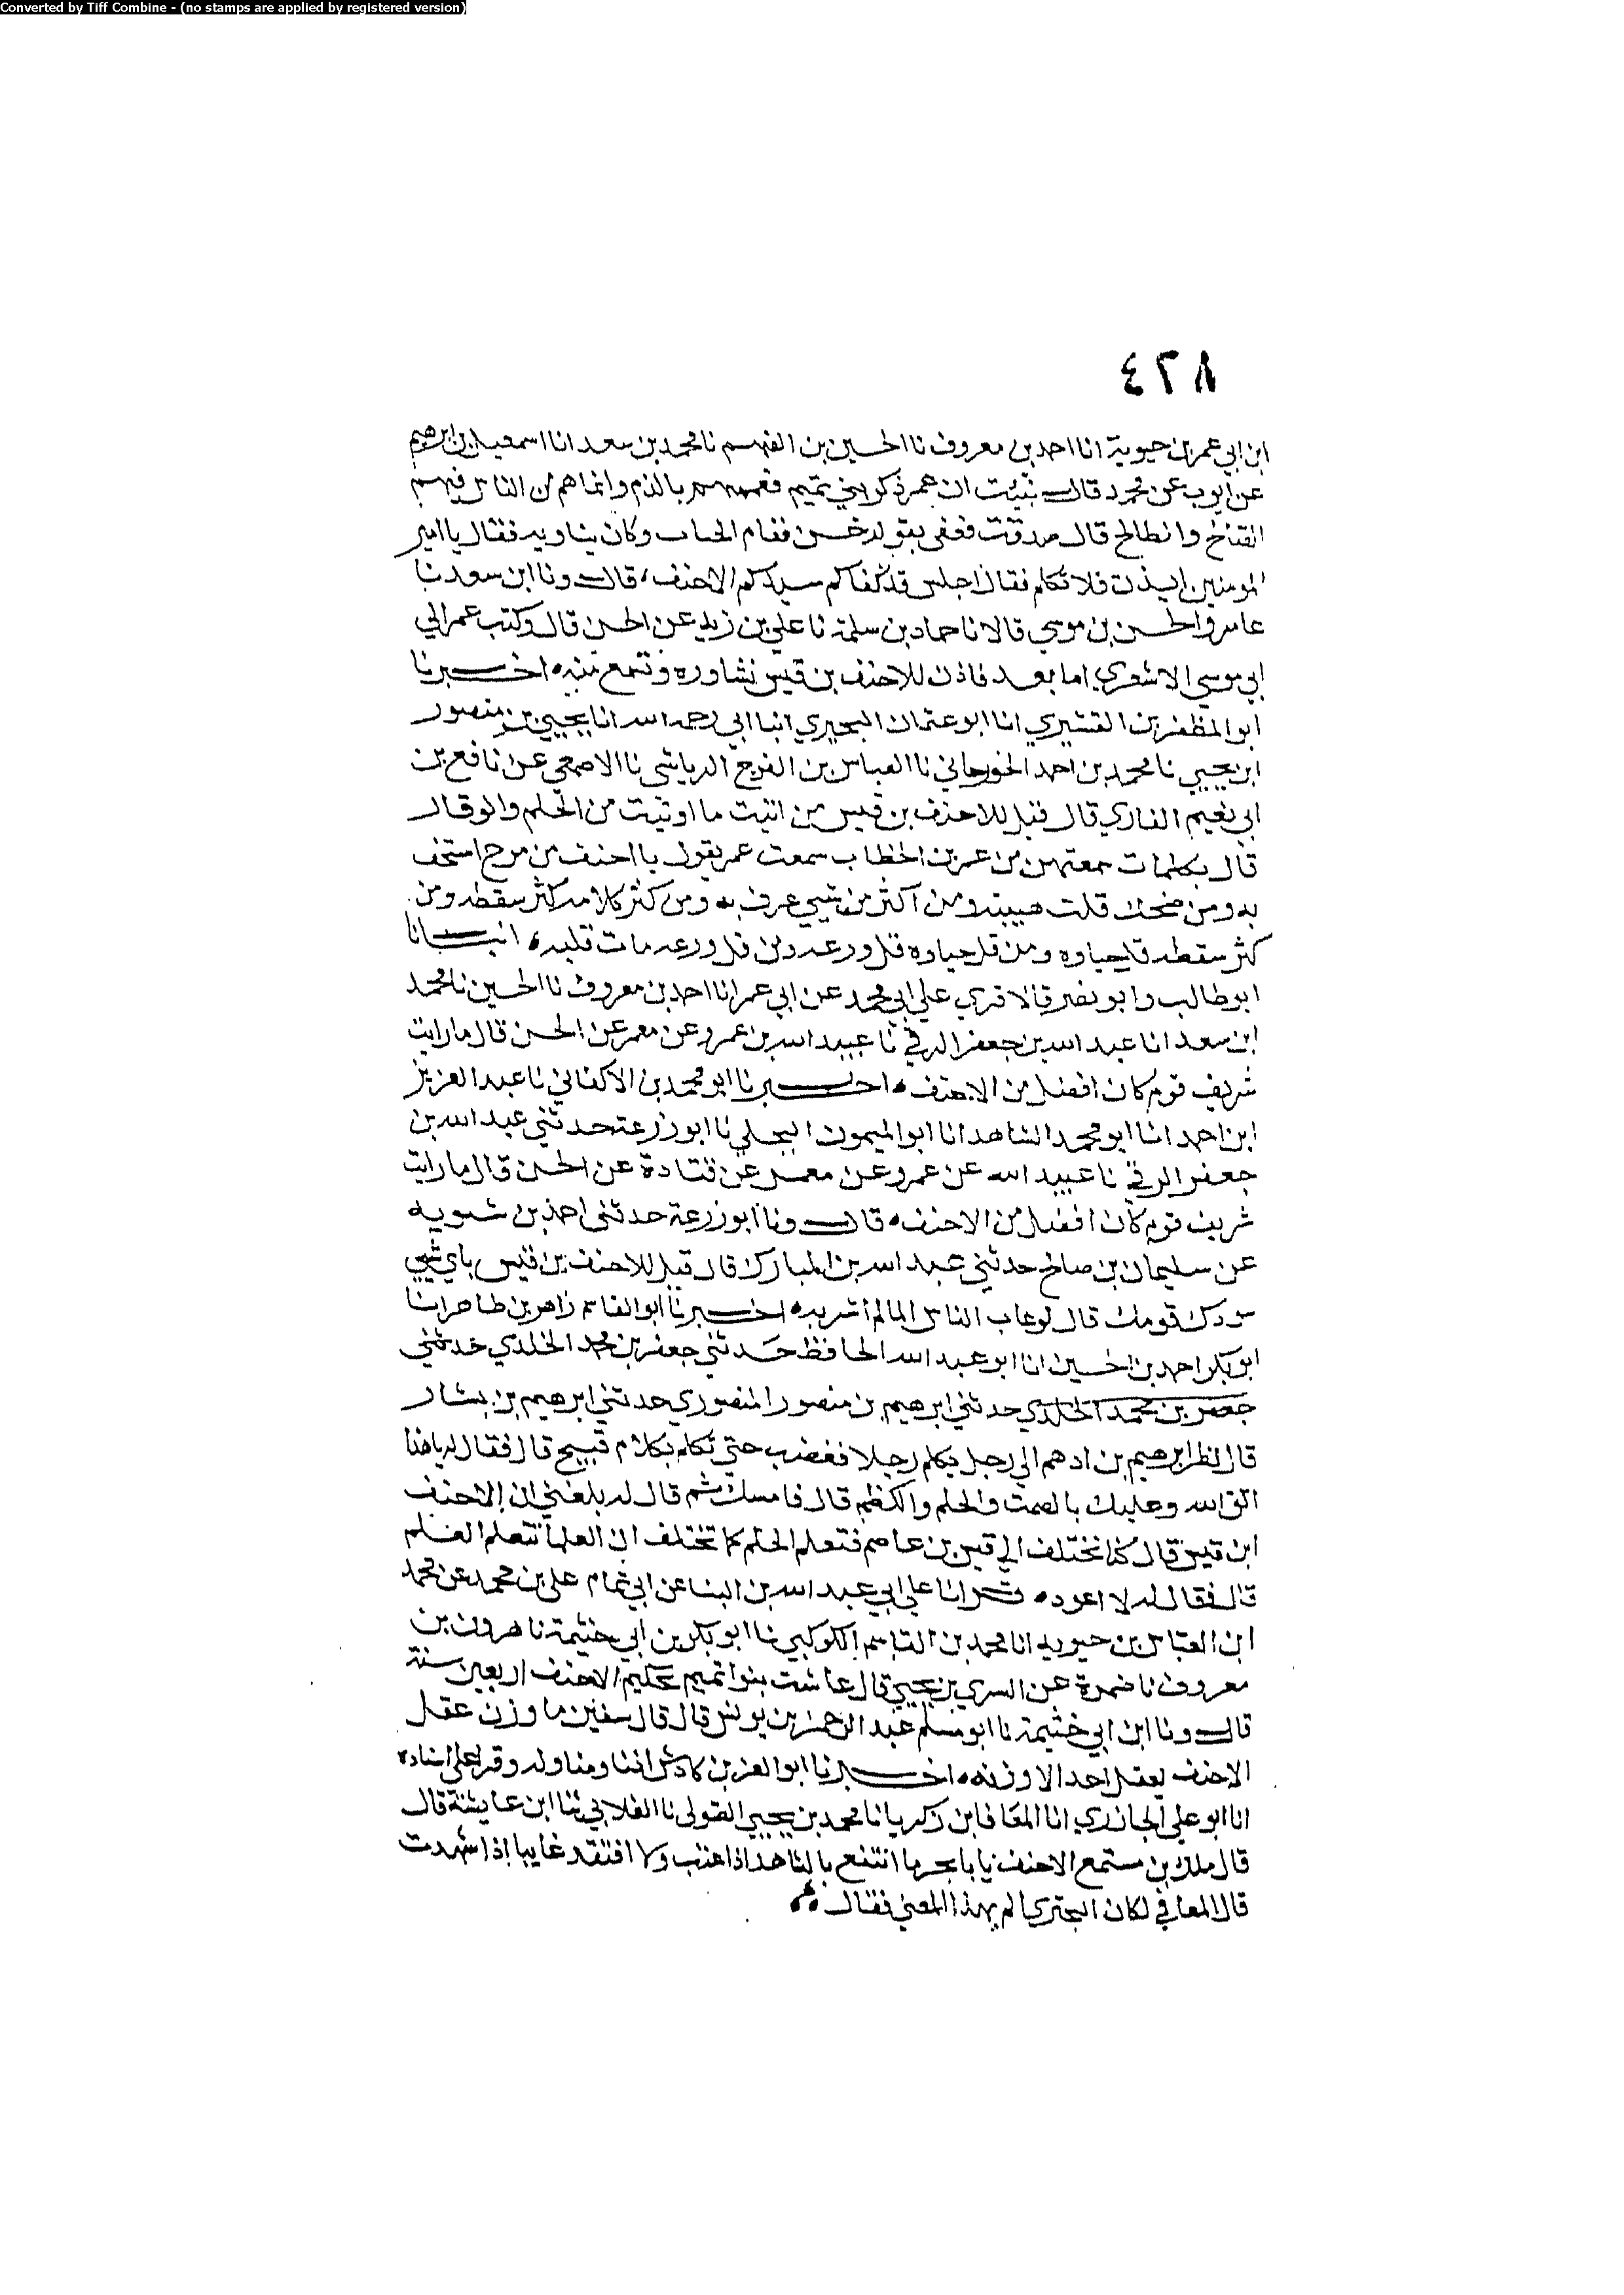 Converted by Tiff Combine - (no stamps are applied by registered version)
٤٢٨
ابن ابي عمر بن حيوية انا احمد بن معروف نا الحسين بن الفهم نا محمد بن سعد انا اسمعيل بن ابرهيم
عن ايوب عن محمد قال نبئت ان عمر ذكر بني تميم فعمهم بالذم وانما هم من الناس فيهم
وا لطالح قال صدقت فقام وكان يناويه فقال يا امير
المومنين ايذن فلا تكلم فقال اجلس قد كفاكم سيدكم الاحنف، قال ونا ابن سعد نا
عامر والحسن بن موسي قالا نا حماد بن سلمة نا علي بن زيد عن الحسن قال وكتب عمر الي
ابي موسي الاشعري اما بعد فاذن للاحنف بن قيس نشاوره وتسمع منه، اخبرنا
ابو المظفر بن القشيري انا ابو عثمان البحيري انبا ابي رحمه الله انا يحيي بن منصور
ابن يحيي نا محمد بن احمد نا العباس بن الفرج الرياشي نا الاصمعي عن نافع بن
ابي نعيم القاري قال قيل للاحنف بن قيس من اتيت ما اوتيت من الحلم والوقار
قال بكلمات سمعتهن من عمر بن الخطاب سمعت عمر يقول يا احنف من مزح استخف
به ومن ضحك قلت هيبته ومن اكثر من شيي عرف به ومن كثر كلامه كثر سقطه ومن
كثر سقطه قل حياوه ومن قل حياوه قل ورعه ومن قل ورعه مات قلبه، انبانا
ابو طالب وابو نصر قالا قري علي ابي محمد عن ابي عمر انا احمد بن معروف نا الحسين نا محمد
ابن سعد انا عبد الله بن جعفر الرقي نا عبيد الله بن عمرو عن معمر عن الحسن قال ما رايت
شريف قوم كان افضل من الاحنف، اخبرنا ابو محمد بن الاكفاني نا عبد العزيز
ابن احمد انا ابو محمد الشاهد انا ابو الميمون البجلي نا ابو زرعة حدثني عبد الله بن
جعفر الرقي نا عبيد الله عن عمرو عن معمر عن قتادة عن الحسن قال ما رايت
شريف قوم كان افضل من الاحنف، قال ونا ابو زرعة حدثني احمد بن شبويه
عن سليمان بن صالح حدثني عبد الله بن المبارك قال قيل للاحنف بن قيس باي شيي
سودك قومك قال لو عاب الناس الما لم اشربه، اخبرنا ابو القاسم زاهر بن طاهر انا
ابو بكر احمد بن الحسين انا ابو عبد الله الحافظ حدثني جعفر بن محمد الخلدي حدثني
جعفر بن محمد الخلدي حدثني ابرهيم بن منصور المنصوري حدثني ابرهيم بن بشار
قال نظر ابرهيم بن ادهم الي رجل يكلم رجلا فغضب حتي تكلم بكلام قبيح قال فقال له يا هذا
اتق الله وعليك بالصمت والحلم والكظم قال فامسك ثم قال له بلغني ان الاحنف
ابن قيس قال كنا نختلف الي قيس بن عاصم فنتعلم الحلم كما تختلف ان العلما نتعلم العلم
قال فقال له لا اعوده، قرانا علي ابي عبد الله بن البنا عن ابي تمام علي بن محمد عن محمد
ابن العباس بن حيويه انا محمد بن القاسم الكوكبي نا ابو بكر بن ابي خيثمة نا هرون بن
معروف نا ضمرة عن السري بن يحيي قال عاشت بنوا تميم الاحنف اربعين سنة
قال ونا ابن ابي خيثمة نا ابو مسلم عبد الرحمن بن يونس قال قال سفين ما وزن عقل
الاحنف بعقل احد الا وزنه، اخبرنا ابو العز بن كادش اذنا ومناولة وقرا علي اسناده
انا ابو علي الجازري انا المعافا بن زكريا نا محمد بن يحيي الصولي نا الغلابي نا ابن عايشة قال
قال ملك بن مسمع الاحنف يا با بحر ما انتفع بالشاهد اذا غبت ولا افتقد غايبا اذا شهدت
قال المعافي لكان البحتري الم بهذا المعني فقال